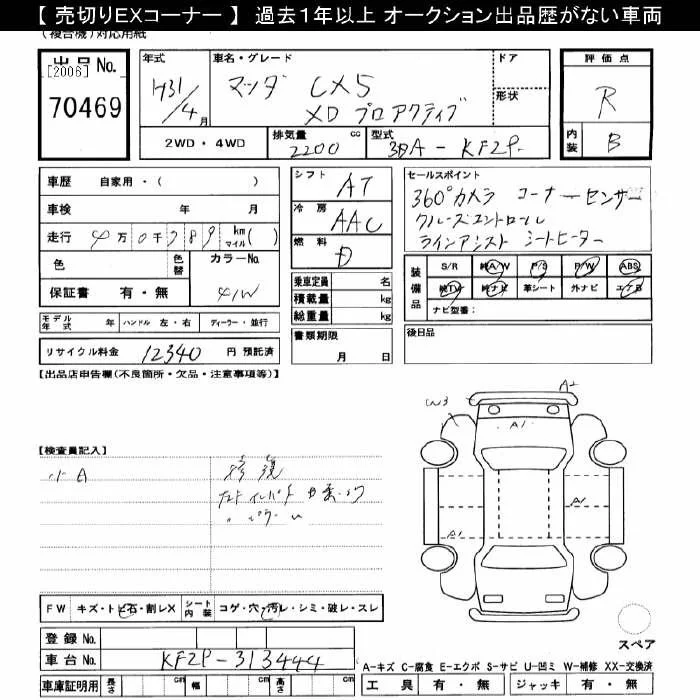 【 売切りEXコーナー 】 過去1年以上 オークション出品歴がない車両
(複合機)対応用紙
出品No.
[2006]
70469
年式
H31/4月
車名・グレード
マツダ CX5
XD プロアクティブ
ドア
形状
2WD・4WD
排気量 2200 cc
型式 3DA-KF2P
評価点
R
内装 B
車歴 自家用・( )
車検 年 月
走行 4万0千789 km マイル( )
色 色替 カラーNo.
保証書 有・無 41W
シフト AT
冷房 AAC
燃料 D
乗車定員 名
積載量 kg
総重量 kg
セールスポイント
360°カメラ コーナーセンサー
クルーズコントロール
ラインアシスト シートヒーター
装備品
S/R 純A/W P/S P/W ABS
純TV 純ナビ 革シート 外ナビ エアB
ナビ型番:
モデル年式 年 ハンドル 左・右 ディーラー・並行
リサイクル料金 12340 円 預託済
書類期限
月 日
後日品
【出品店申告欄(不良箇所・欠品・注意事項等)】
A2
W3
A1
【検査員記入】
小A 修復
A1
A1
FW キズ・トビ石・割レX シート内装 コゲ・穴・汚レ・シミ・破レ・スレ
登録No.
車台No. KF2P-313444
スペア
A-キズ C-腐食 E-エクボ S-サビ U-凹ミ W-補修 XX-交換済
車庫証明用 長さ cm 幅 cm 高さ cm
工具 有・無 ジャッキ 有・無